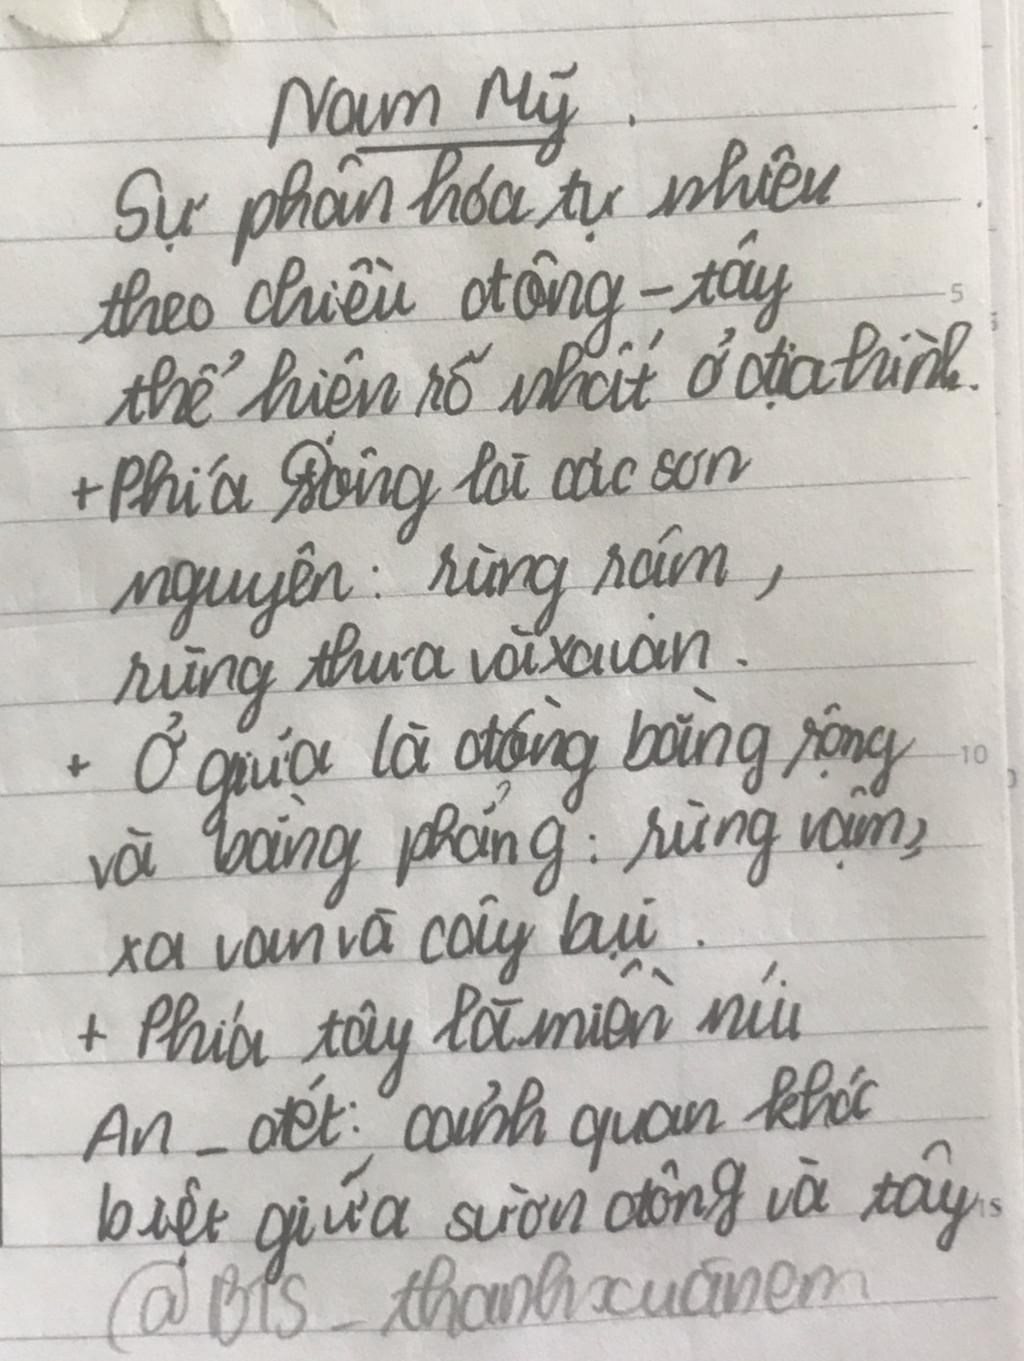 Nam Mỹ.
Sự phân hóa tự nhiên
theo chiều đông - tây
thể hiện rõ nhất ở địa hình.
+ Phía Đông là các sơn
nguyên: rừng rám,
rừng thưa và xa van.
+ Ở giữa là đồng bằng rộng
và bằng phẳng: rừng rậm,
xa van và cây bụi.
+ Phía tây là miền núi
An - đét: cảnh quan khác
biệt giữa sườn đông và tây
@BTS - thanhxuânem